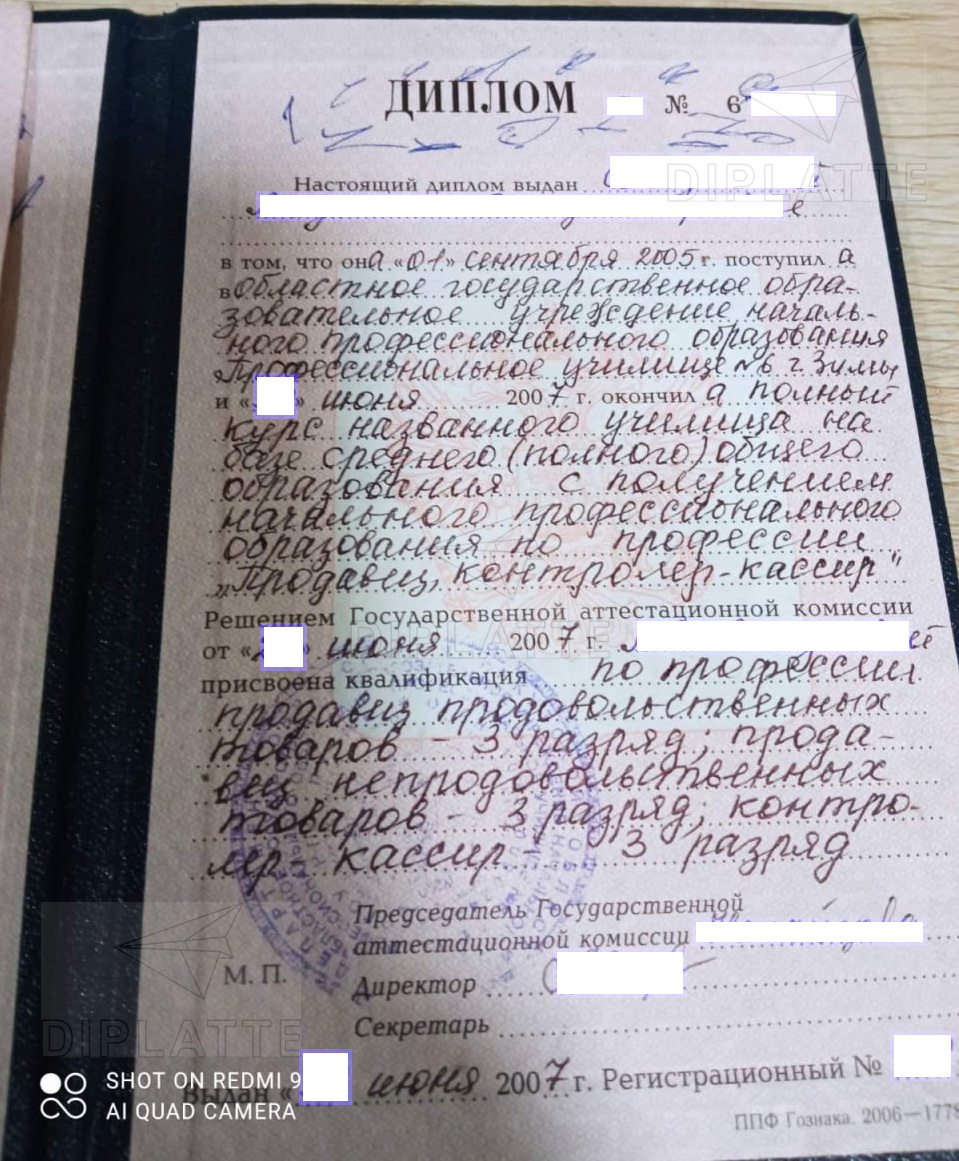 ДИПЛОМ № 6
DIPLATTE
Настоящий диплом выдан
в том, что она «01» сентября 2005 г. поступил а
в Областное государственное обра-
зовательное учреждение началь-
ного профессионального образования
Профессиональное училище №6 г. Зимы
и « » июня 2007 г. окончил а полный
курс названного училища на
базе среднего (полного) общего
образования с получением
начального профессионального
образования по профессии
„Продавец, контролер-кассир"
Решением Государственной аттестационной комиссии
от «2 » июня 2007 г.
DIPLATTE
присвоена квалификация по профессии
продавец продовольственных
товаров - 3 разряд; прода-
вец непродовольственных
товаров - 3 разряд; контро-
лер кассир - 3 разряд
Председатель Государственной
аттестационной комиссии
М. П.
Директор
Секретарь
DIPLATTE
Выдан « » июня 2007 г. Регистрационный №
SHOT ON REDMI 9
AI QUAD CAMERA
ППФ Гознака. 2006—1778